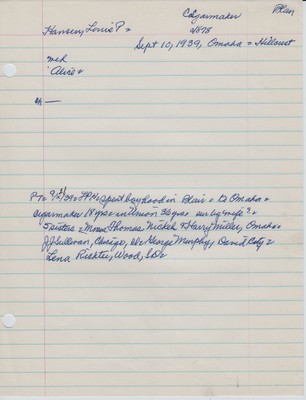 Cigarmaker Blair
Hansen, Louis P = 1878
Sept 10, 1939, Omaha = Hillcrest
med
Alice =
ch —
P-T= 9/21/39= LPH spent boyhood in Blair = to Omaha =
cigarmaker 18 yrs = in Union 36 yrs sur by wife =
5 sisters = Mmes Thomas Nickel & Harry Miller, Omaha =
J J Sullivan, Chicago, Ill = George Murphy, David City =
Lena Richter, Wood, SD =